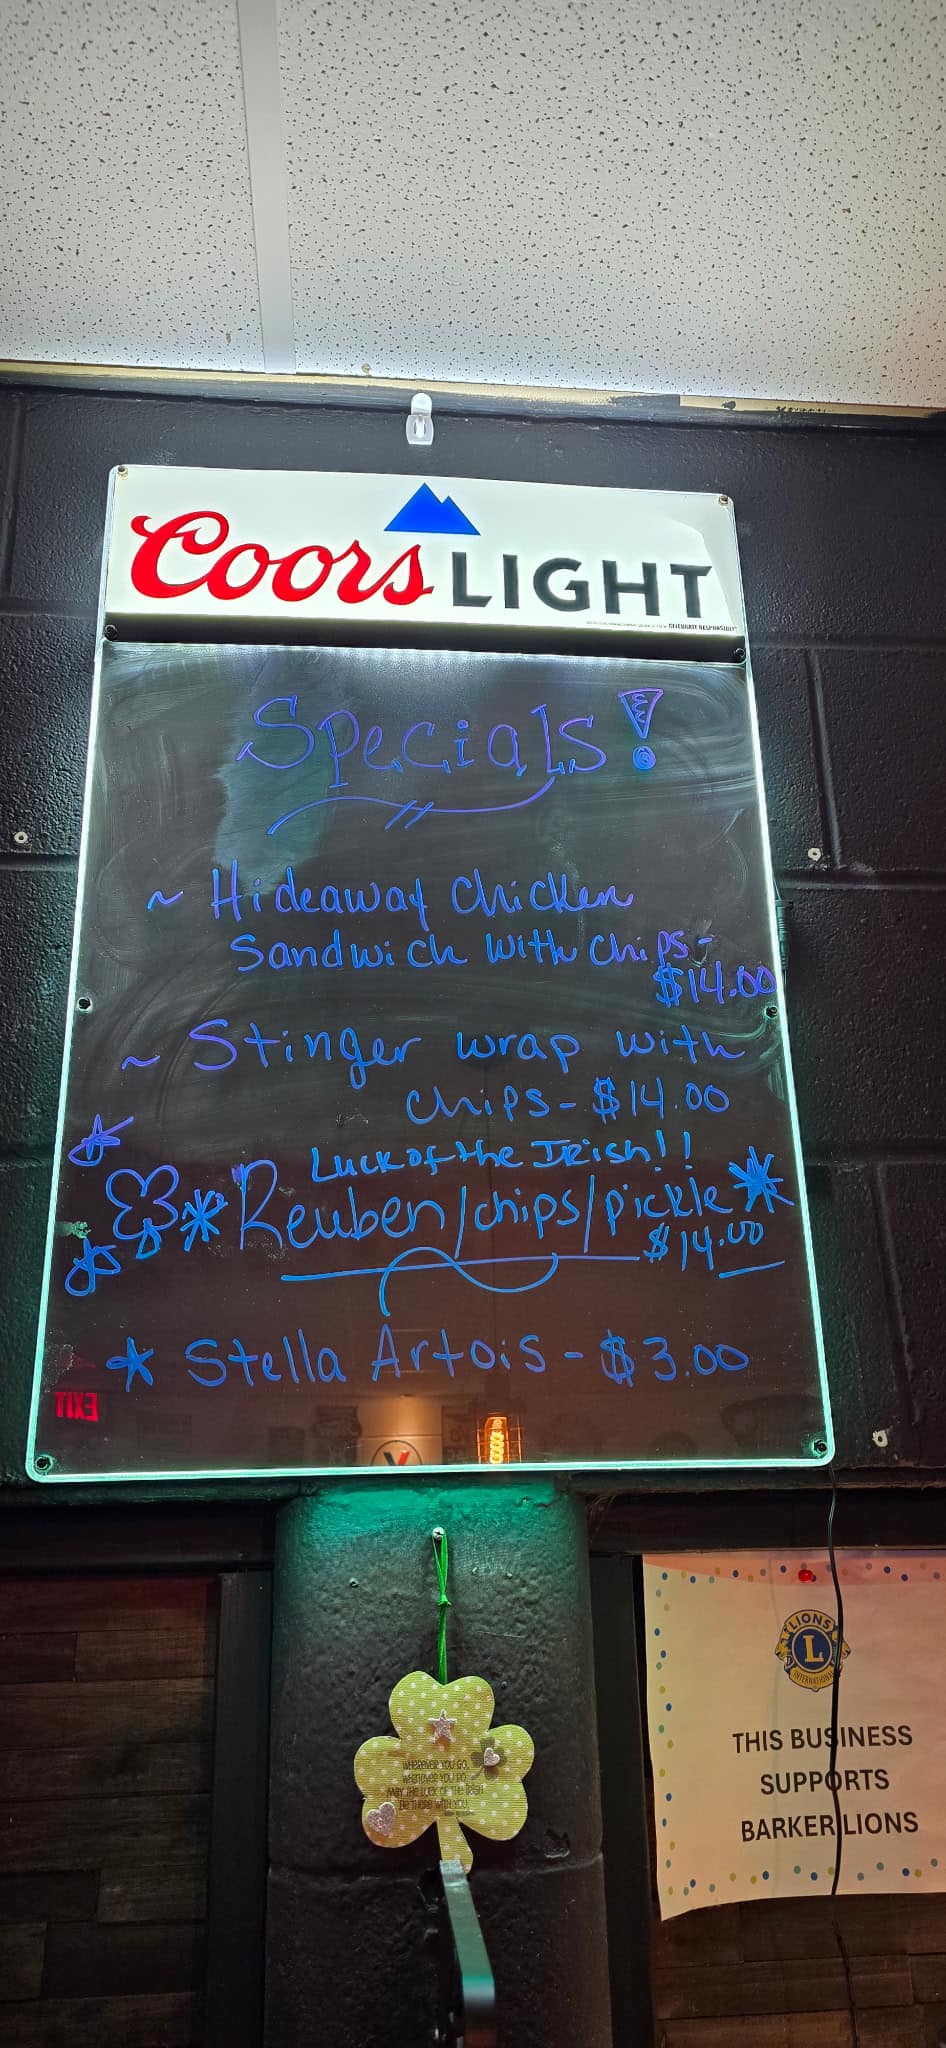 Coors LIGHT
CELEBRATE RESPONSIBLY
Specials!
~ Hideaway Chicken
Sandwich with chips-
$14.00
~ Stinger wrap with
chips- $14.00
Luck of the Irish!!
*Reuben/chips/pickle*
$14.00
* Stella Artois - $3.00
EXIT
WHEREVER YOU GO,
WHATEVER YOU DO
MAY THE LUCK OF THE IRISH
BE THERE WITH YOU
LIONS
L
INTERNATIONAL
THIS BUSINESS
SUPPORTS
BARKER LIONS